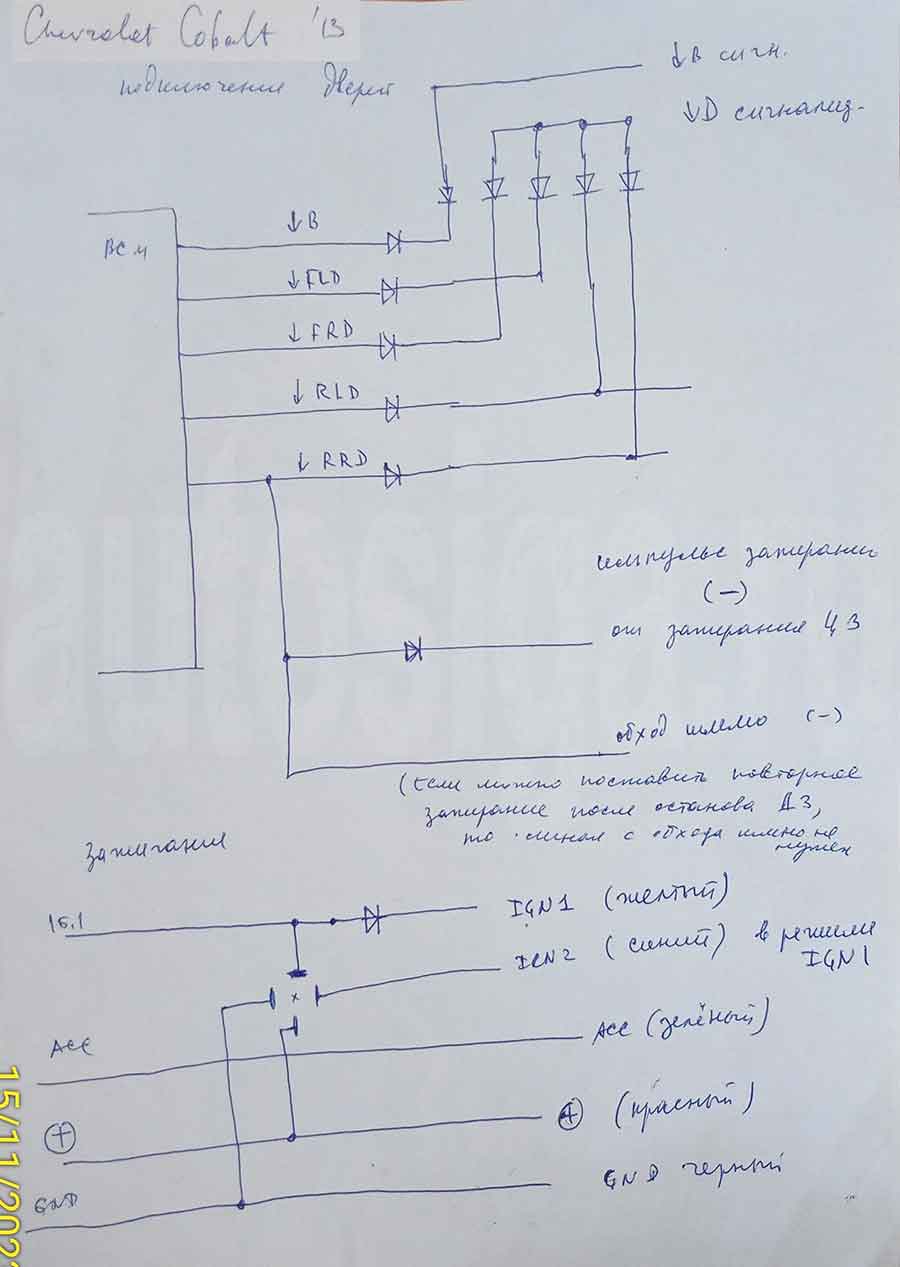 Chevrolet Cobalt '13
подключение дверей
↓B сигн.
↓D сигнализ.
BCM
↓B
↓FLD
↓FRD
↓RLD
↓RRD
импульс запирания
(–)
от запирания ЦЗ
обход иммо (–)
(Если можно поставить повторное
запирание после останова ДЗ,
то сигнал с обхода иммо не
нужен
Зажигание
IG.1
IGN1 (желтый)
IGN2 (синий) в режиме
IGN1
ACC
ACC (зелёный)
+
+ (красный)
GND
GND черный
15/11/202